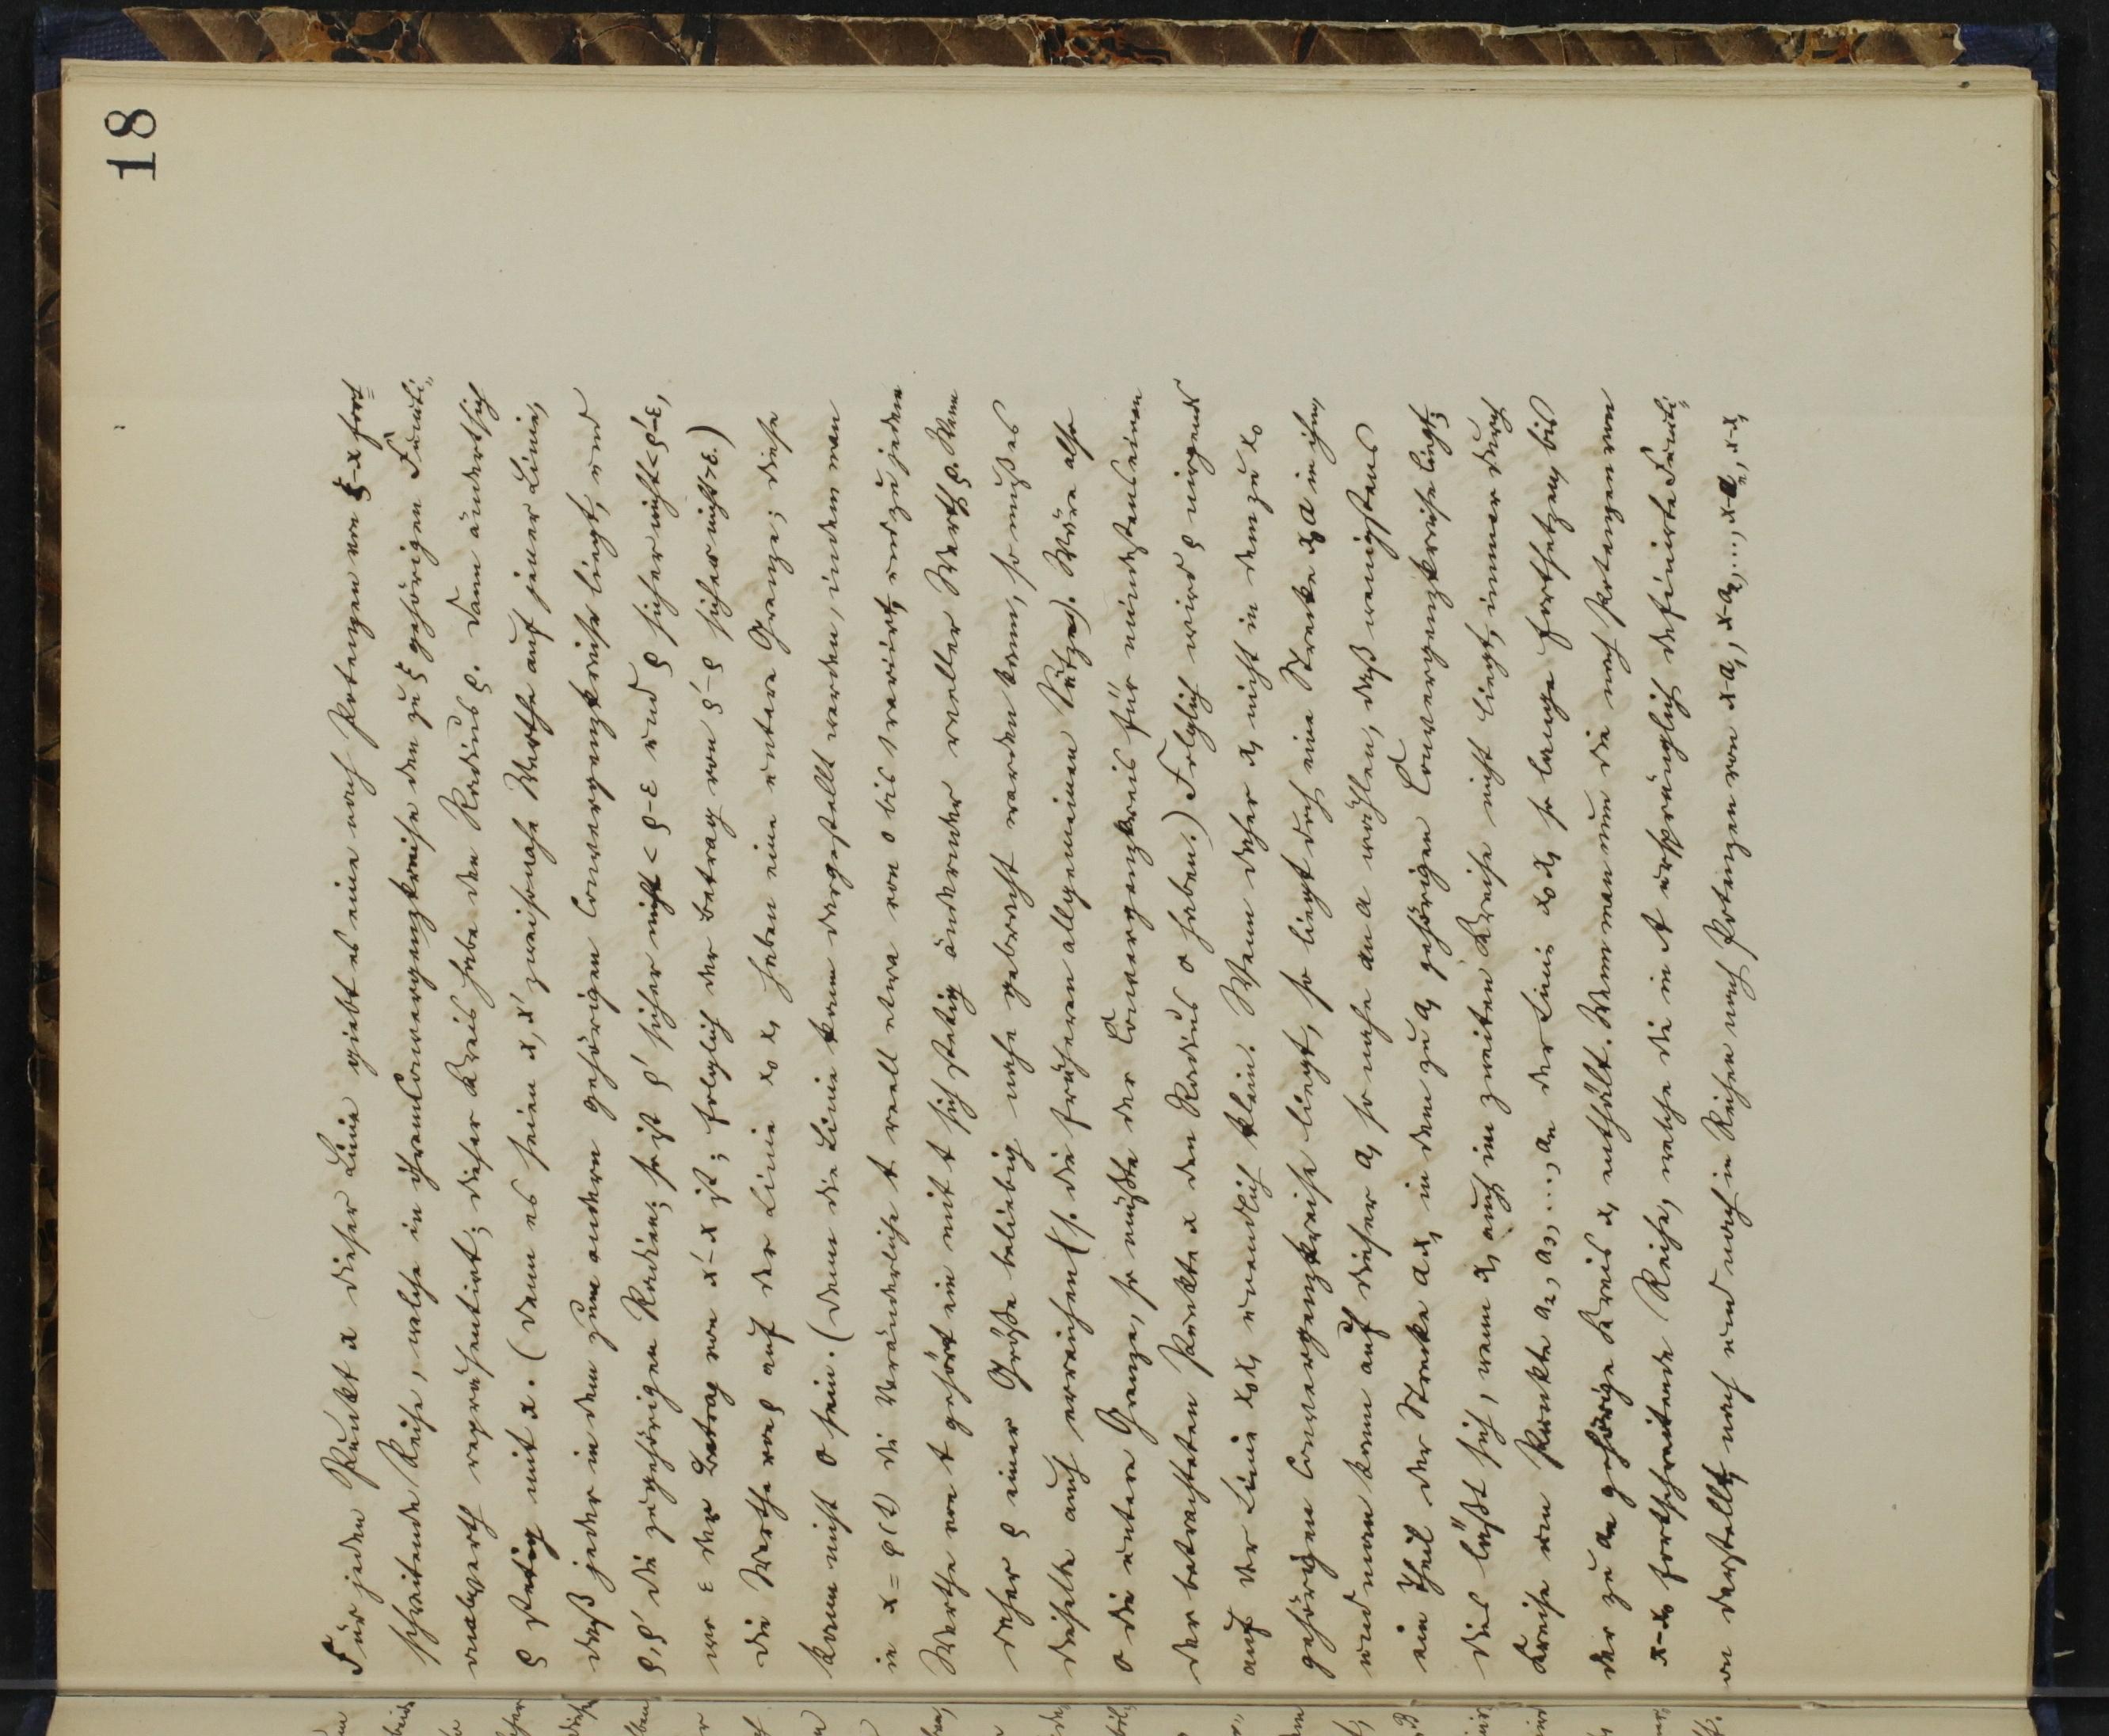 18
Für jeden Punkt x dieser Linie giebt es eine nach Potenzen von ξ-x fort=
schreitende Reihe, welche in ihrem Convergenzkreise den zu ξ gehörigen Functi-
onalwerth repräsentirt; dieser Kreis habe den Radius ρ. Dann ändert sich
ρ stetig mit x. (Denn es seien x, x' zwei so nahe Werthe auf jener Linie,
daß jeder in dem zum andern gehörigen Convergenzkreise liegt, und
ρ, ρ' die zugehörigen Radien; so ist ρ' sicher nicht < ρ-ε und ρ sicher nicht < ρ'-ε,
wo ε der Betrag von x'-x ist; folglich der Betrag von ρ'-ρ sicher nicht > ε.)
Die Werthe von ρ auf der Linie x₀ x₁ haben eine untere Grenze; diese
kann nicht 0 sein. (Denn die Linie kann dargestellt werden, indem man
in x = φ(t) die Veränderliche t reell etwa von 0 bis 1 variirt, und zu jedem
Werthe von t gehört ein mit t sich stetig ändernder reeller Werth ρ. Wenn
daher ρ einer Größe beliebig nahe gebracht werden kann, so muß es
dieselbe auch erreichen (s. die früheren allgemeinen Sätze). Wäre also
0 die untere Grenze, so müßte der Convergenzkreis für mindestens einen
der betrachteten Punkte x den Radius 0 haben.) Folglich wird ρ nirgends
auf der Linie x₀x₁ unendlich klein. Wenn daher x₁ nicht in dem zu x₀
gehörigen Convergenzkreise liegt, so liegt doch eine Strecke x₀a in ihm,
und man kann auf dieser a₁ so nahe an a wählen, daß wenigstens
ein Theil der Strecke ax₁ in dem zu a₁ gehörigen Convergenzkreise liegt;
dies läßt sich, wenn x₁ auch im zweiten Kreise nicht liegt, immer durch
Kreise um Punkte a₂, a₃, ..., aₙ der Linie x₀x₁ so lange fortsetzen, bis
der zu aₙ gehörige Kreis x₁ enthält. Wenn man nun die nach Potenzen von
x-x₀ fortschreitende Reihe, welche die in A ursprünglich definirte Functi-
on darstellt, nach und nach in Reihen nach Potenzen von x-a₁, x-a₂, ..., x-aₙ, x-x₁